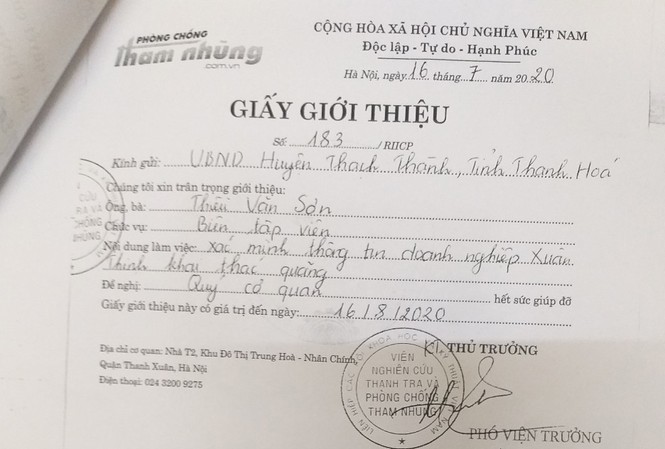 PHÒNG CHỐNG
tham nhũng
.com.vn
CỘNG HÒA XÃ HỘI CHỦ NGHĨA VIỆT NAM
Độc lập - Tự do - Hạnh Phúc
Hà Nội, ngày 16 tháng 7 năm 2020
GIẤY GIỚI THIỆU
Số: 183 /RIICP
Kính gửi: UBND Huyện Thạch Thành, Tỉnh Thanh Hoá
Chúng tôi xin trân trọng giới thiệu:
Ông, bà: Thiều Văn Sơn
Chức vụ: Biên tập viên
Nội dung làm việc: Xác minh thông tin doanh nghiệp Xuân
Thịnh khai thác quặng
Đề nghị: Quý cơ quan hết sức giúp đỡ
Giấy giới thiệu này có giá trị đến ngày: 16/8/2020
Địa chỉ cơ quan: Nhà T2, Khu Đô Thị Trung Hoà - Nhân Chính,
Quận Thanh Xuân, Hà Nội
Điện thoại: 024 3200 9275
THỦ TRƯỞNG
VIỆN
NGHIÊN CỨU
THANH TRA VÀ
PHÒNG CHỐNG
THAM NHŨNG
PHÓ VIỆN TRƯỞNG